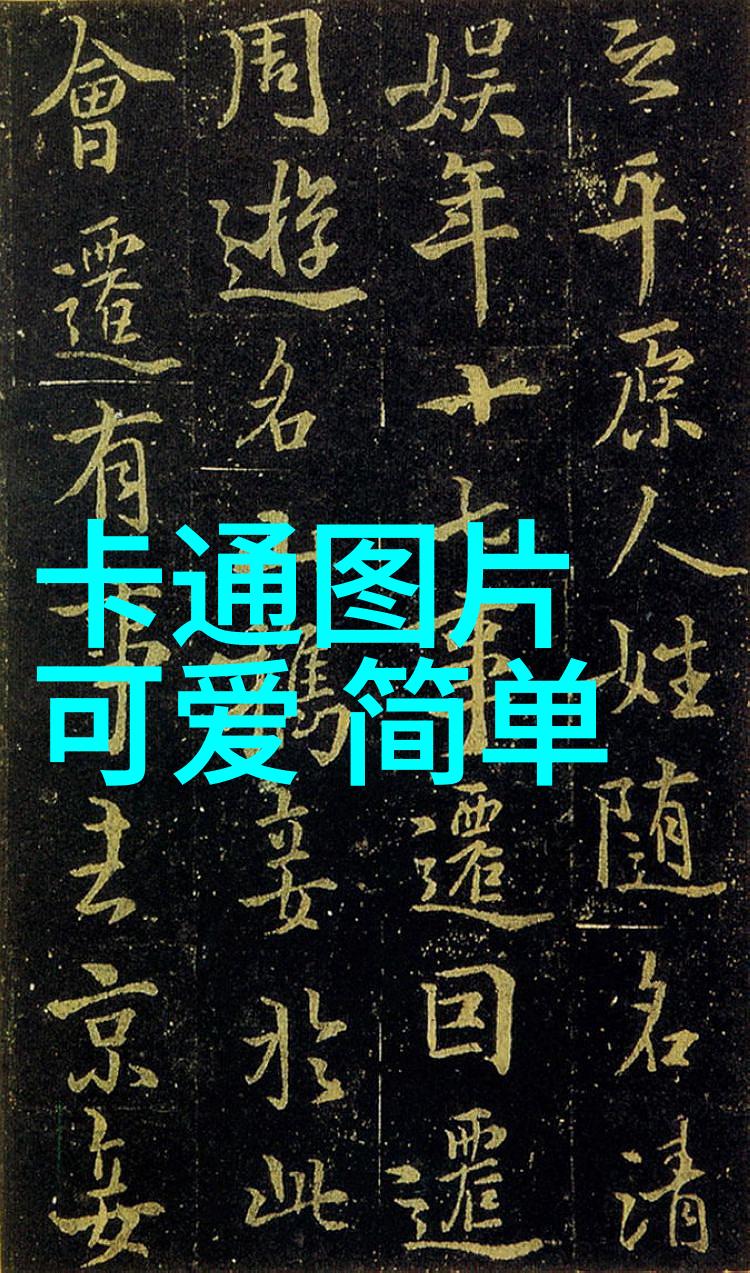 之平原人姓随名清
娱年十七事遷因遷
周遊名携妾於此
會遷有事去京妾
卡通图片
可爱 简单